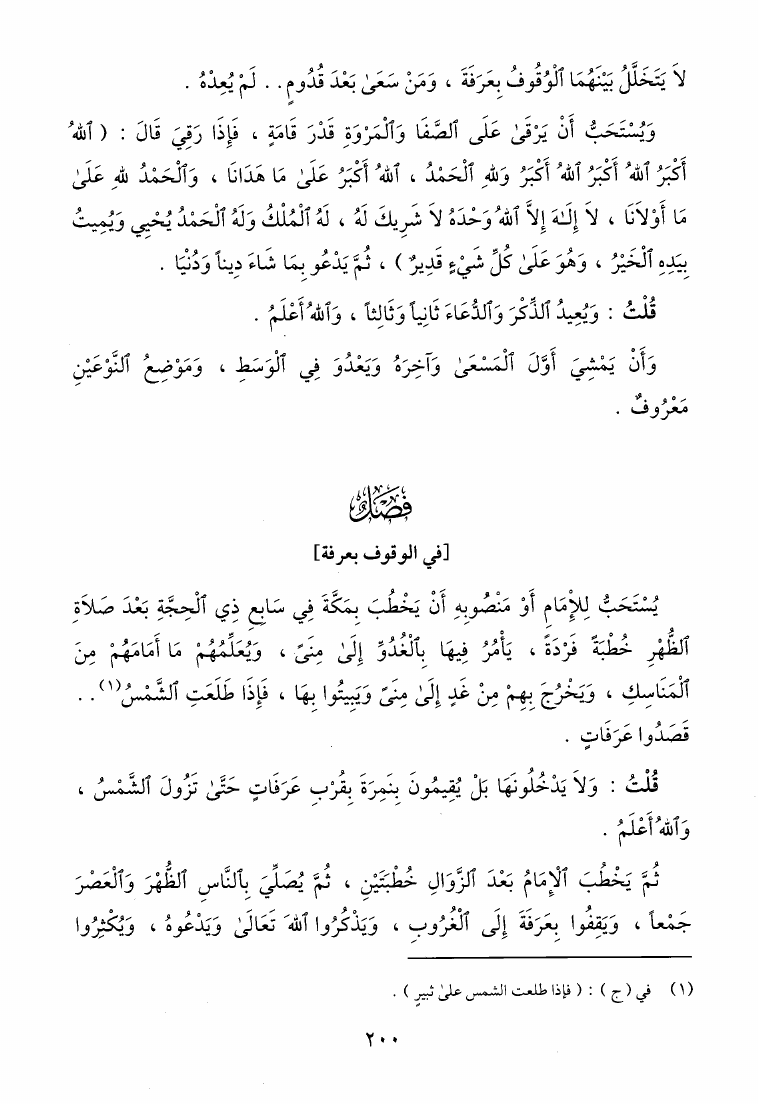 لاَ يَتَخَلَّلُ بَيْنَهُمَا ٱلْوُقُوفُ بِعَرَفَةَ ، وَمَنْ سَعَىٰ بَعْدَ قُدُومٍ . . لَمْ يُعِدْهُ .
وَيُسْتَحَبُّ أَنْ يَرْقَىٰ عَلَى ٱلصَّفَا وَٱلْمَرْوَةِ قَدْرَ قَامَةٍ ، فَإِذَا رَقِيَ قَالَ : ( ٱللهُ
أَكْبَرُ ٱللهُ أَكْبَرُ ٱللهُ أَكْبَرُ وَللهِ ٱلْحَمْدُ ، ٱللهُ أَكْبَرُ عَلَىٰ مَا هَدَانَا ، وَٱلْحَمْدُ للهِ عَلَىٰ
مَا أَوْلاَنَا ، لاَ إِلَـٰهَ إِلاَّ ٱللهُ وَحْدَهُ لاَ شَرِيكَ لَهُ ، لَهُ ٱلْمُلْكُ وَلَهُ ٱلْحَمْدُ يُحْيِي وَيُمِيتُ
بِيَدِهِ ٱلْخَيْرُ ، وَهُوَ عَلَىٰ كُلِّ شَيْءٍ قَدِيرٌ ) ، ثُمَّ يَدْعُو بِمَا شَاءَ دِيناً وَدُنْيَا .
قُلْتُ : وَيُعِيدُ ٱلذِّكْرَ وَٱلدُّعَاءَ ثَانِياً وَثَالِثاً ، وَٱللهُ أَعْلَمُ .
وَأَنْ يَمْشِيَ أَوَّلَ ٱلْمَسْعَىٰ وَآخِرَهُ وَيَعْدُوَ فِي ٱلْوَسَطِ ، وَمَوْضِعُ ٱلنَّوْعَيْنِ
مَعْرُوفٌ .
فَصْلٌ
[في الوقوف بعرفة]
يُسْتَحَبُّ لِلإِمَامِ أَوْ مَنْصُوبِهِ أَنْ يَخْطُبَ بِمَكَّةَ فِي سَابِعِ ذِي ٱلْحِجَّةِ بَعْدَ صَلاَةِ
ٱلظُّهْرِ خُطْبَةً فَرْدَةً ، يَأْمُرُ فِيهَا بِٱلْغُدُوِّ إِلَىٰ مِنَىً ، وَيُعَلِّمُهُمْ مَا أَمَامَهُمْ مِنَ
ٱلْمَنَاسِكِ ، وَيَخْرُجَ بِهِمْ مِنْ غَدٍ إِلَىٰ مِنَىً وَيَبِيتُوا بِهَا ، فَإِذَا طَلَعَتِ ٱلشَّمْسُ(١) . .
قَصَدُوا عَرَفَاتٍ .
قُلْتُ : وَلاَ يَدْخُلُونَهَا بَلْ يُقِيمُونَ بِنَمِرَةَ بِقُرْبِ عَرَفَاتٍ حَتَّىٰ تَزُولَ ٱلشَّمْسُ ،
وَٱللهُ أَعْلَمُ .
ثُمَّ يَخْطُبَ ٱلإِمَامُ بَعْدَ ٱلزَّوَالِ خُطْبَتَيْنِ ، ثُمَّ يُصَلِّيَ بِٱلنَّاسِ ٱلظُّهْرَ وَٱلْعَصْرَ
جَمْعاً ، وَيَقِفُوا بِعَرَفَةَ إِلَى ٱلْغُرُوبِ ، وَيَذْكُرُوا ٱللهَ تَعَالَىٰ وَيَدْعُوهُ ، وَيُكْثِرُوا
(١) في ( ج ) : ( فإذا طلعت الشمس علىٰ ثبيرٍ ) .
٢٠٠